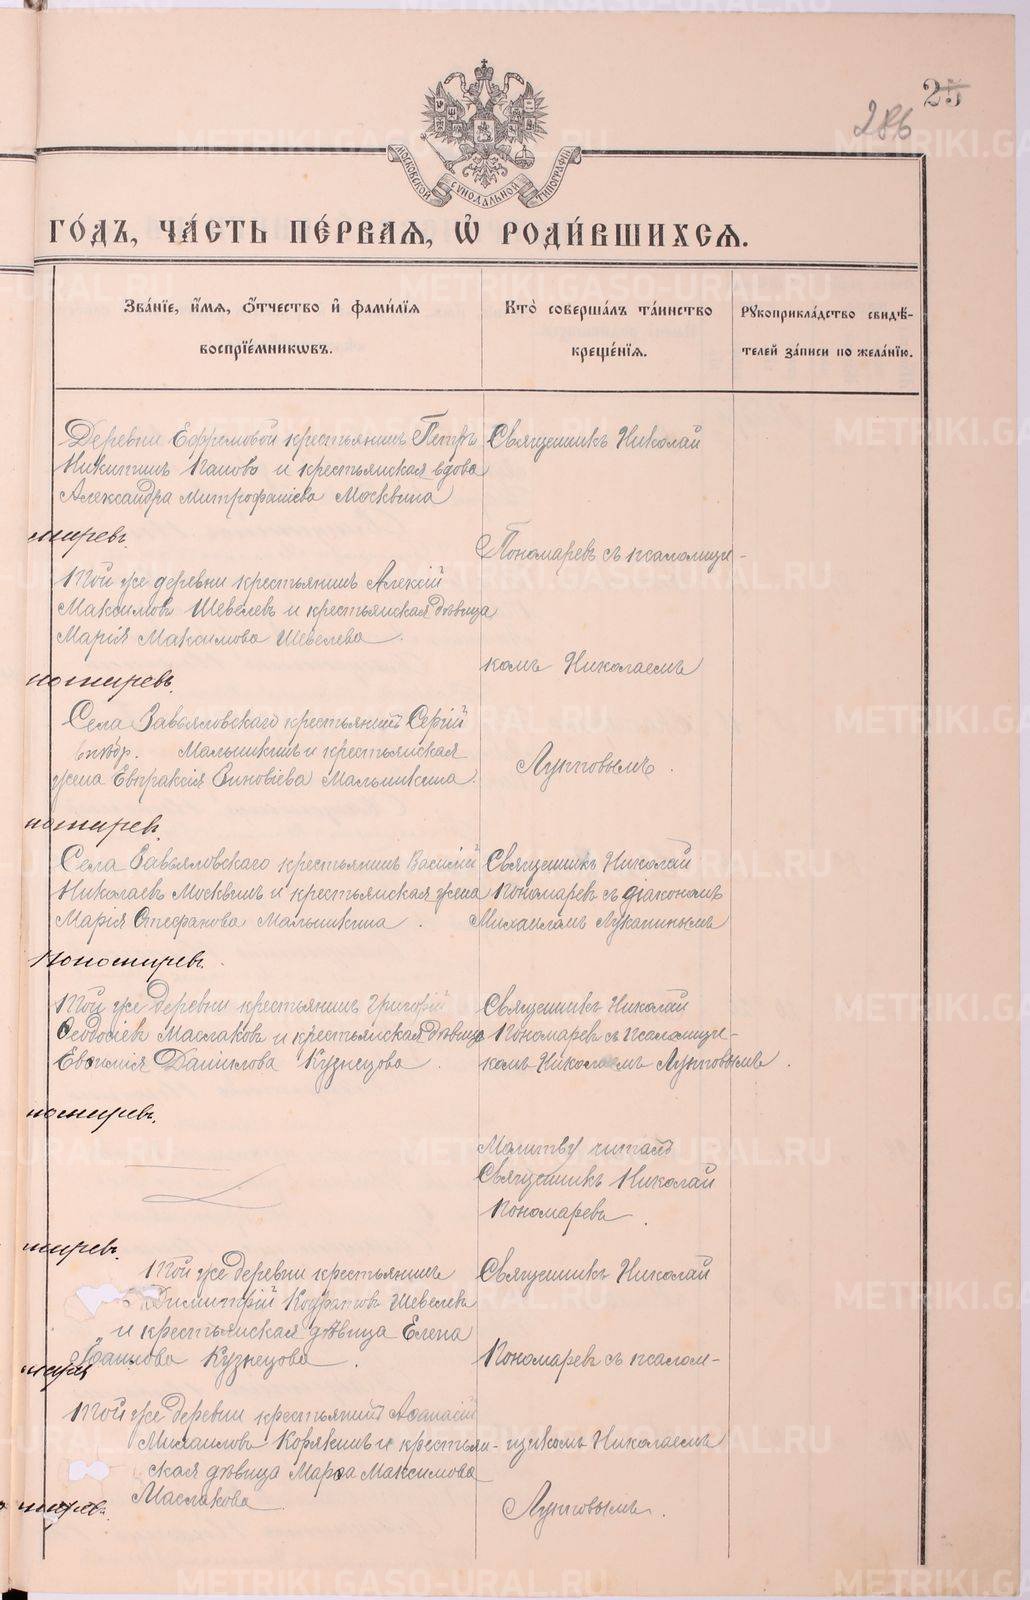 25
286
МОСКОВСКОЙ СѴНОДАЛЬНОЙ ТИПОГРАФІИ
ГО́ДЪ, ЧА́СТЬ ПЕ́РВАЯ, Ѽ РОДИ́ВШИХСЯ.
Зва́ніе, и҆́мя, ѻ҆́тчество и҆ фами́лїя
воспрїе́мниковъ.
Кто̀ соверша́лъ та́инство
креще́нїя.
Рꙋкоприкла́дство свидѣ́-
телей за́писи по жела́нїю.
Деревни Ефремовой крестьянинъ Петръ
Никитинъ Поповъ и крестьянская вдова
Александра Митрофанiева Москвина
Священникъ Николай
Пономаревъ съ псаломщи-
комъ Николаемъ
Луптовымъ.
Той же деревни крестьянинъ Алексiй
Максимовъ Шевелевъ и крестьянская дѣвица
Марiя Максимова Шевелева.
Села Завьяловскаго крестьянинъ Сергiй
Мальшкинъ и крестьянская
жена Евпраксiя Зиновiева Мальшкина.
Села Завьяловскаго крестьянинъ Василiй
Николаевъ Москвинъ и крестьянская жена
Марiя Стефанова Мальшкина.
Священникъ Николай
Пономаревъ съ дiакономъ
Михаиломъ Лукапинымъ
Той же деревни крестьянинъ Григорiй
Ѳеодосiевъ Маслаковъ и крестьянская дѣвица
Евѳимiя Данiилова Кузнецова.
Священникъ Николай
Пономаревъ съ псаломщи-
комъ Николаемъ Луптовымъ.
Молитву читалъ
Священникъ Николай
Пономаревъ.
Той же деревни крестьянинъ
Димитрiй Кодратовъ Шевелевъ
и крестьянская дѣвица Елена
Кузнецова.
Священникъ Николай
Пономаревъ съ псалом-
щикомъ Николаемъ
Луптовымъ.
Той же деревни крестьянинъ Аѳанасiй
Михаиловъ Корякинъ и крестьян-
ская дѣвица Марѳа Максимова
Маслакова.
METRIKI.GASO-URAL.RU